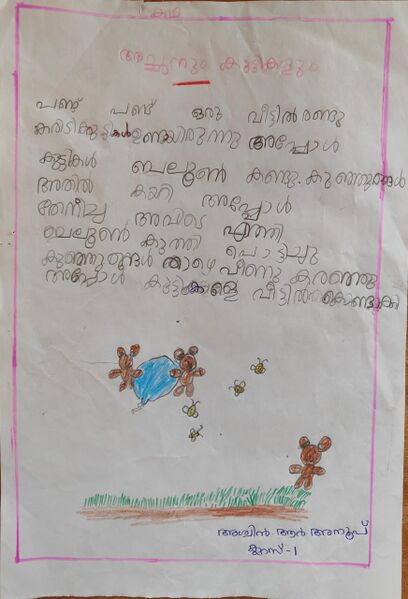 കഥ
അച്ഛനും കുട്ടികളും
പണ്ട് പണ്ട് ഒരു വീട്ടിൽ രണ്ടു
കരടിക്കുട്ടികൾ ഉണ്ടായിരുന്നു അപ്പോൾ
കുട്ടികൾ ബലൂൺ കണ്ടു. കുഞ്ഞുങ്ങൾ
അതിൽ കയറി അപ്പോൾ
തേനീച്ച അവിടെ എത്തി
ബലൂൺ കുത്തി പൊട്ടിച്ചു
കുഞ്ഞുങ്ങൾ താഴെ വീണു കരഞ്ഞു
അപ്പോൾ കുട്ടികളെ വീട്ടിൽ കൊണ്ടാക്കി
അശ്വിൻ ആർ അനൂപ്
ക്ലാസ് - 1